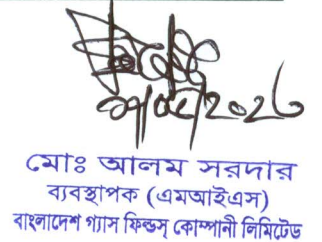 মোঃ আলম সরদার
ব্যবস্থাপক (এমআইএস)
বাংলাদেশ গ্যাস ফিল্ডস্ কোম্পানী লিমিটেড